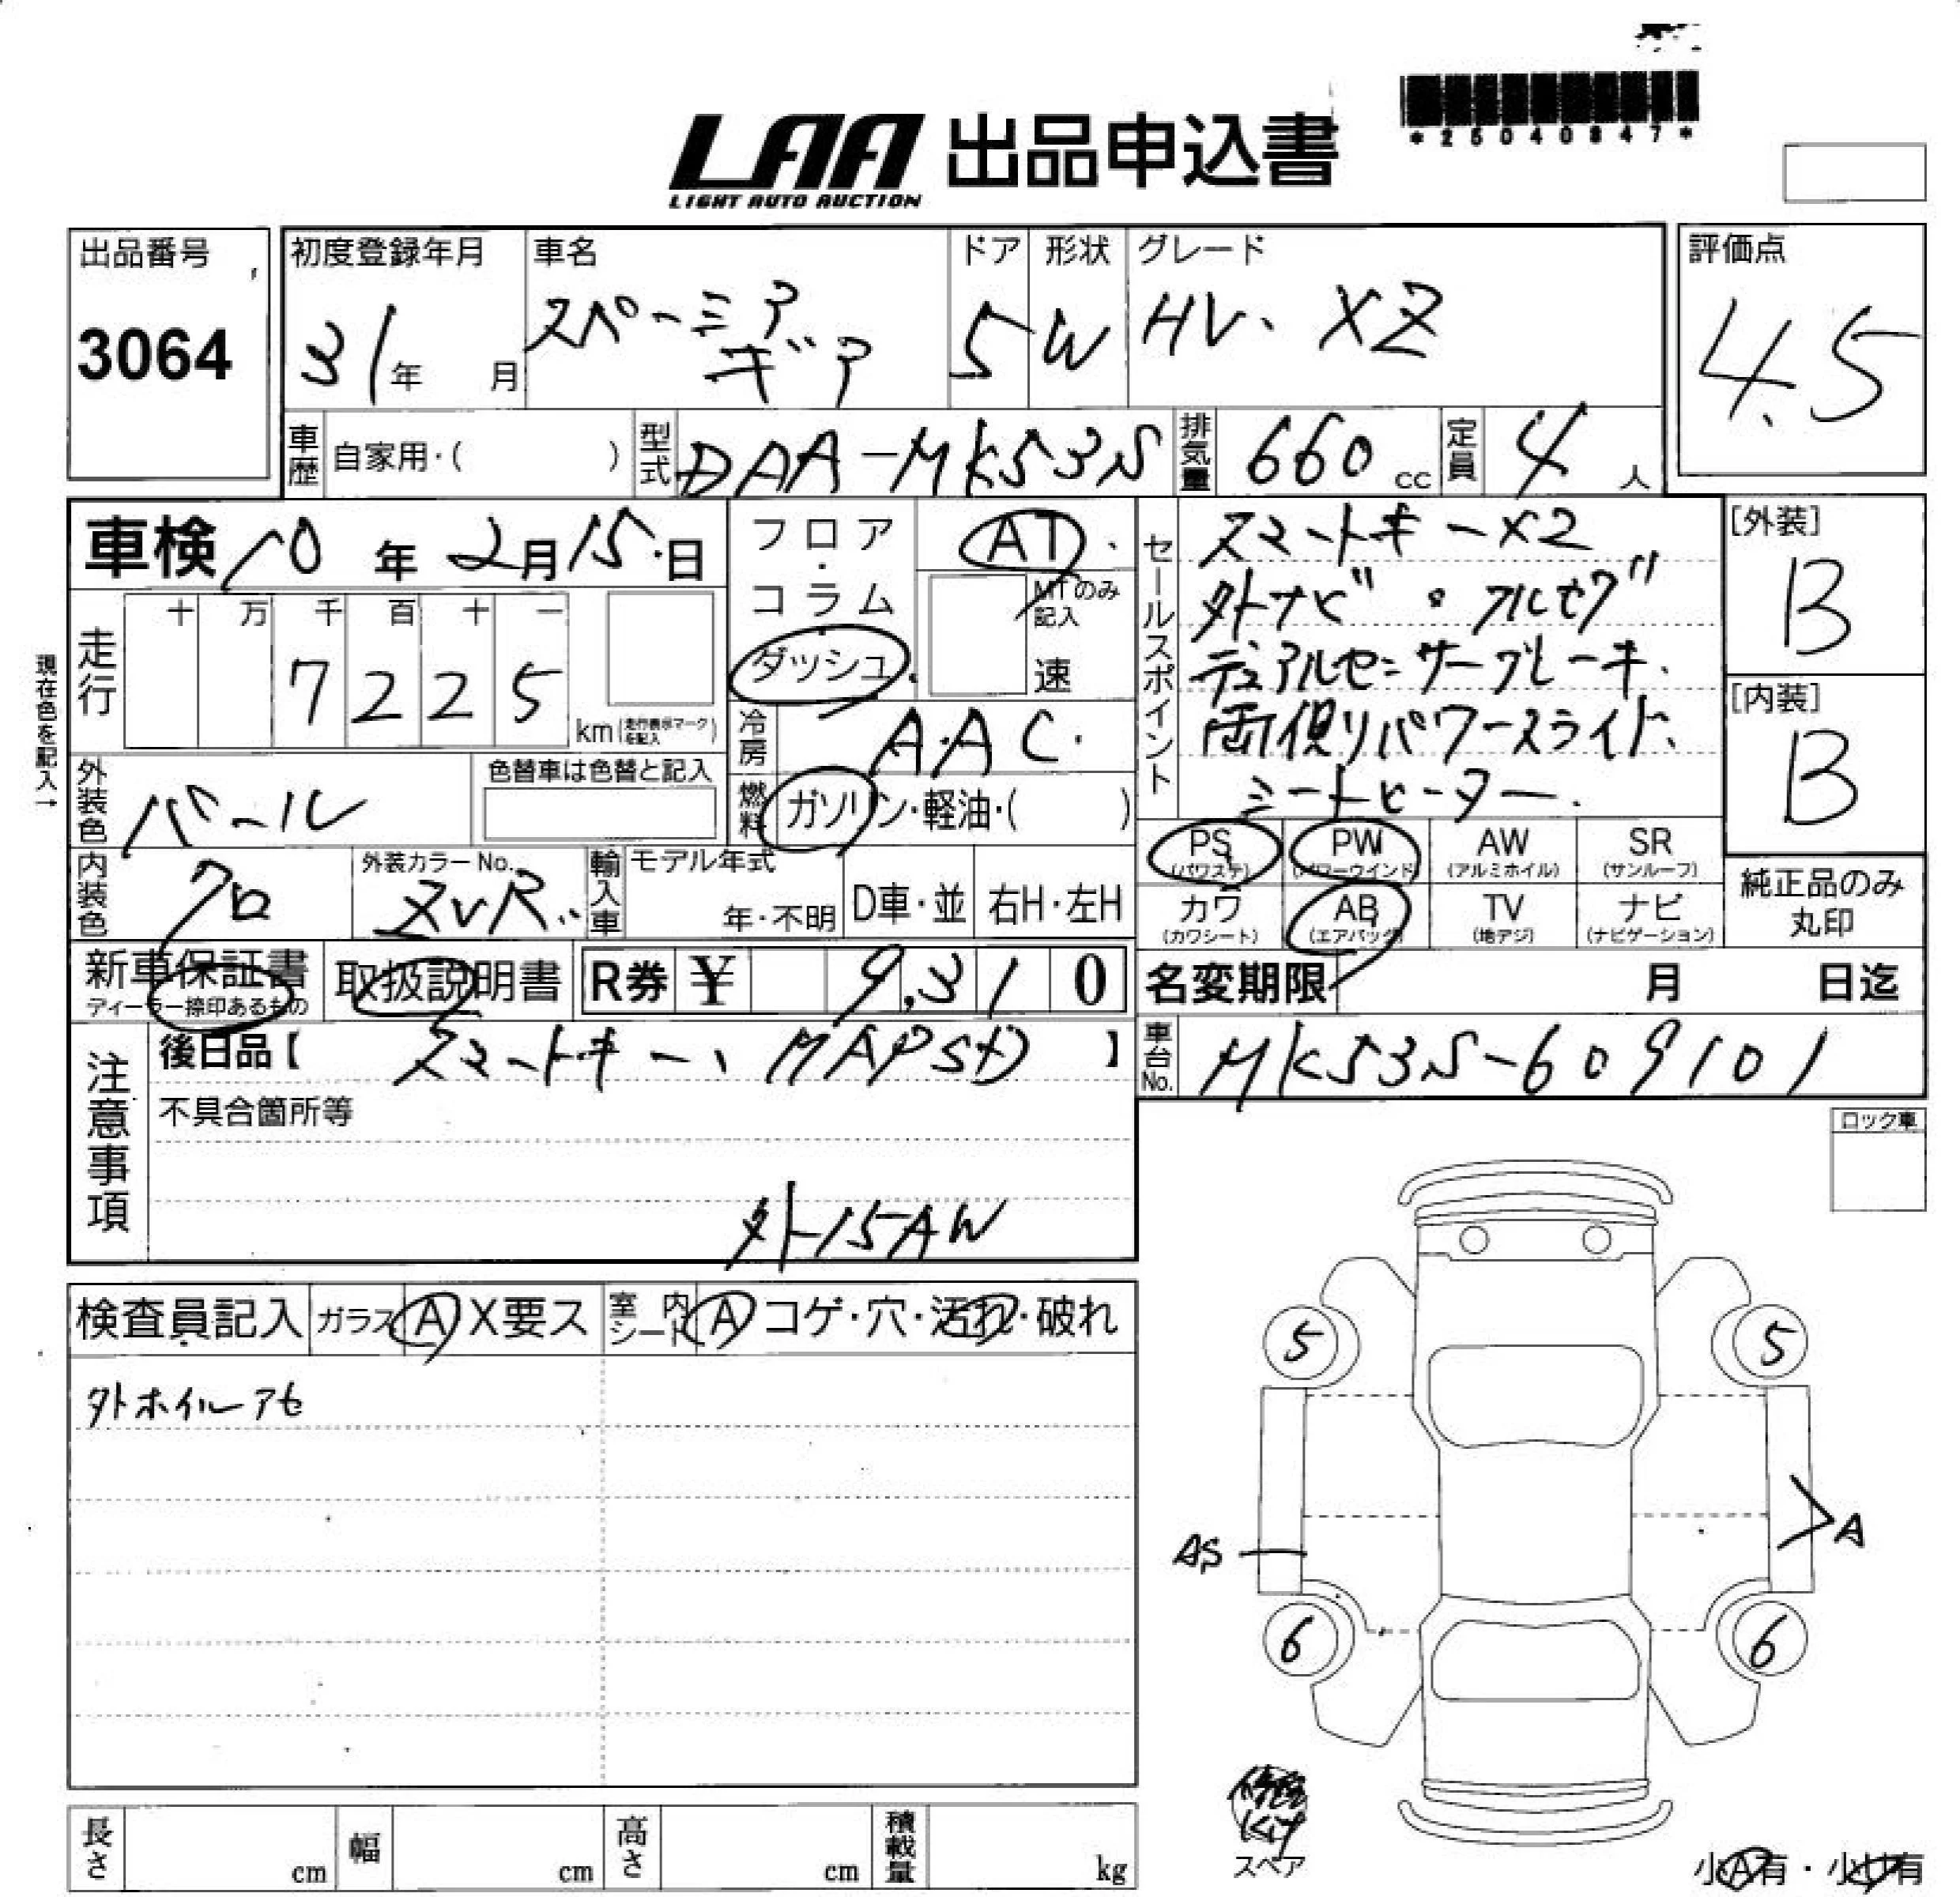 *25040847*
LAA 出品申込書
LIGHT AUTO AUCTION
出品番号
3064
初度登録年月
31年 月
車名
スペーシア
ギア
ドア
5
形状
W
グレード
HV. XZ
評価点
4.5
車歴 自家用・( )
型式 DAA-MK53S
排気量 660 cc
定員 4 人
車検 10年 2月 15日
走行
十 万 千 百 十 一
7 2 2 5
km(走行表示マークを記入)
現在色を記入→
外装色 パール
色替車は色替と記入
内装色 クロ
外装カラーNo.
ZVR
輸入車
モデル年式
年・不明
D車・並
右H・左H
フロア・
コラム
ダッシュ
AT
MTのみ記入
速
冷房 A.A C.
燃料 ガソリン・軽油・( )
セールスポイント
スマートキーX2
外ナビ・フルセグ
デュアルセンサーブレーキ.
両側パワースライド、
シートヒーター.
[外装]
B
[内装]
B
PS (パワステ)
PW (パワーウインド)
AW (アルミホイル)
SR (サンルーフ)
カワ (カワシート)
AB (エアバッグ)
TV (地デジ)
ナビ (ナビゲーション)
純正品のみ
丸印
新車保証書
ディーラー捺印あるもの
取扱説明書
R券 ¥ 9,310
名変期限 月 日迄
車台No. MK53S-609101
注意事項
後日品【 スマートキー、MAPSD 】
不具合箇所等
外15AW
ロック車
検査員記入
ガラス A X要ス
室内シート A コゲ・穴・汚れ・破れ
外ホイルアセ
5
5
A
AS
6
6
修理
Kit
スペア
小A有・小U有
長さ cm
幅 cm
高さ cm
積載量 kg